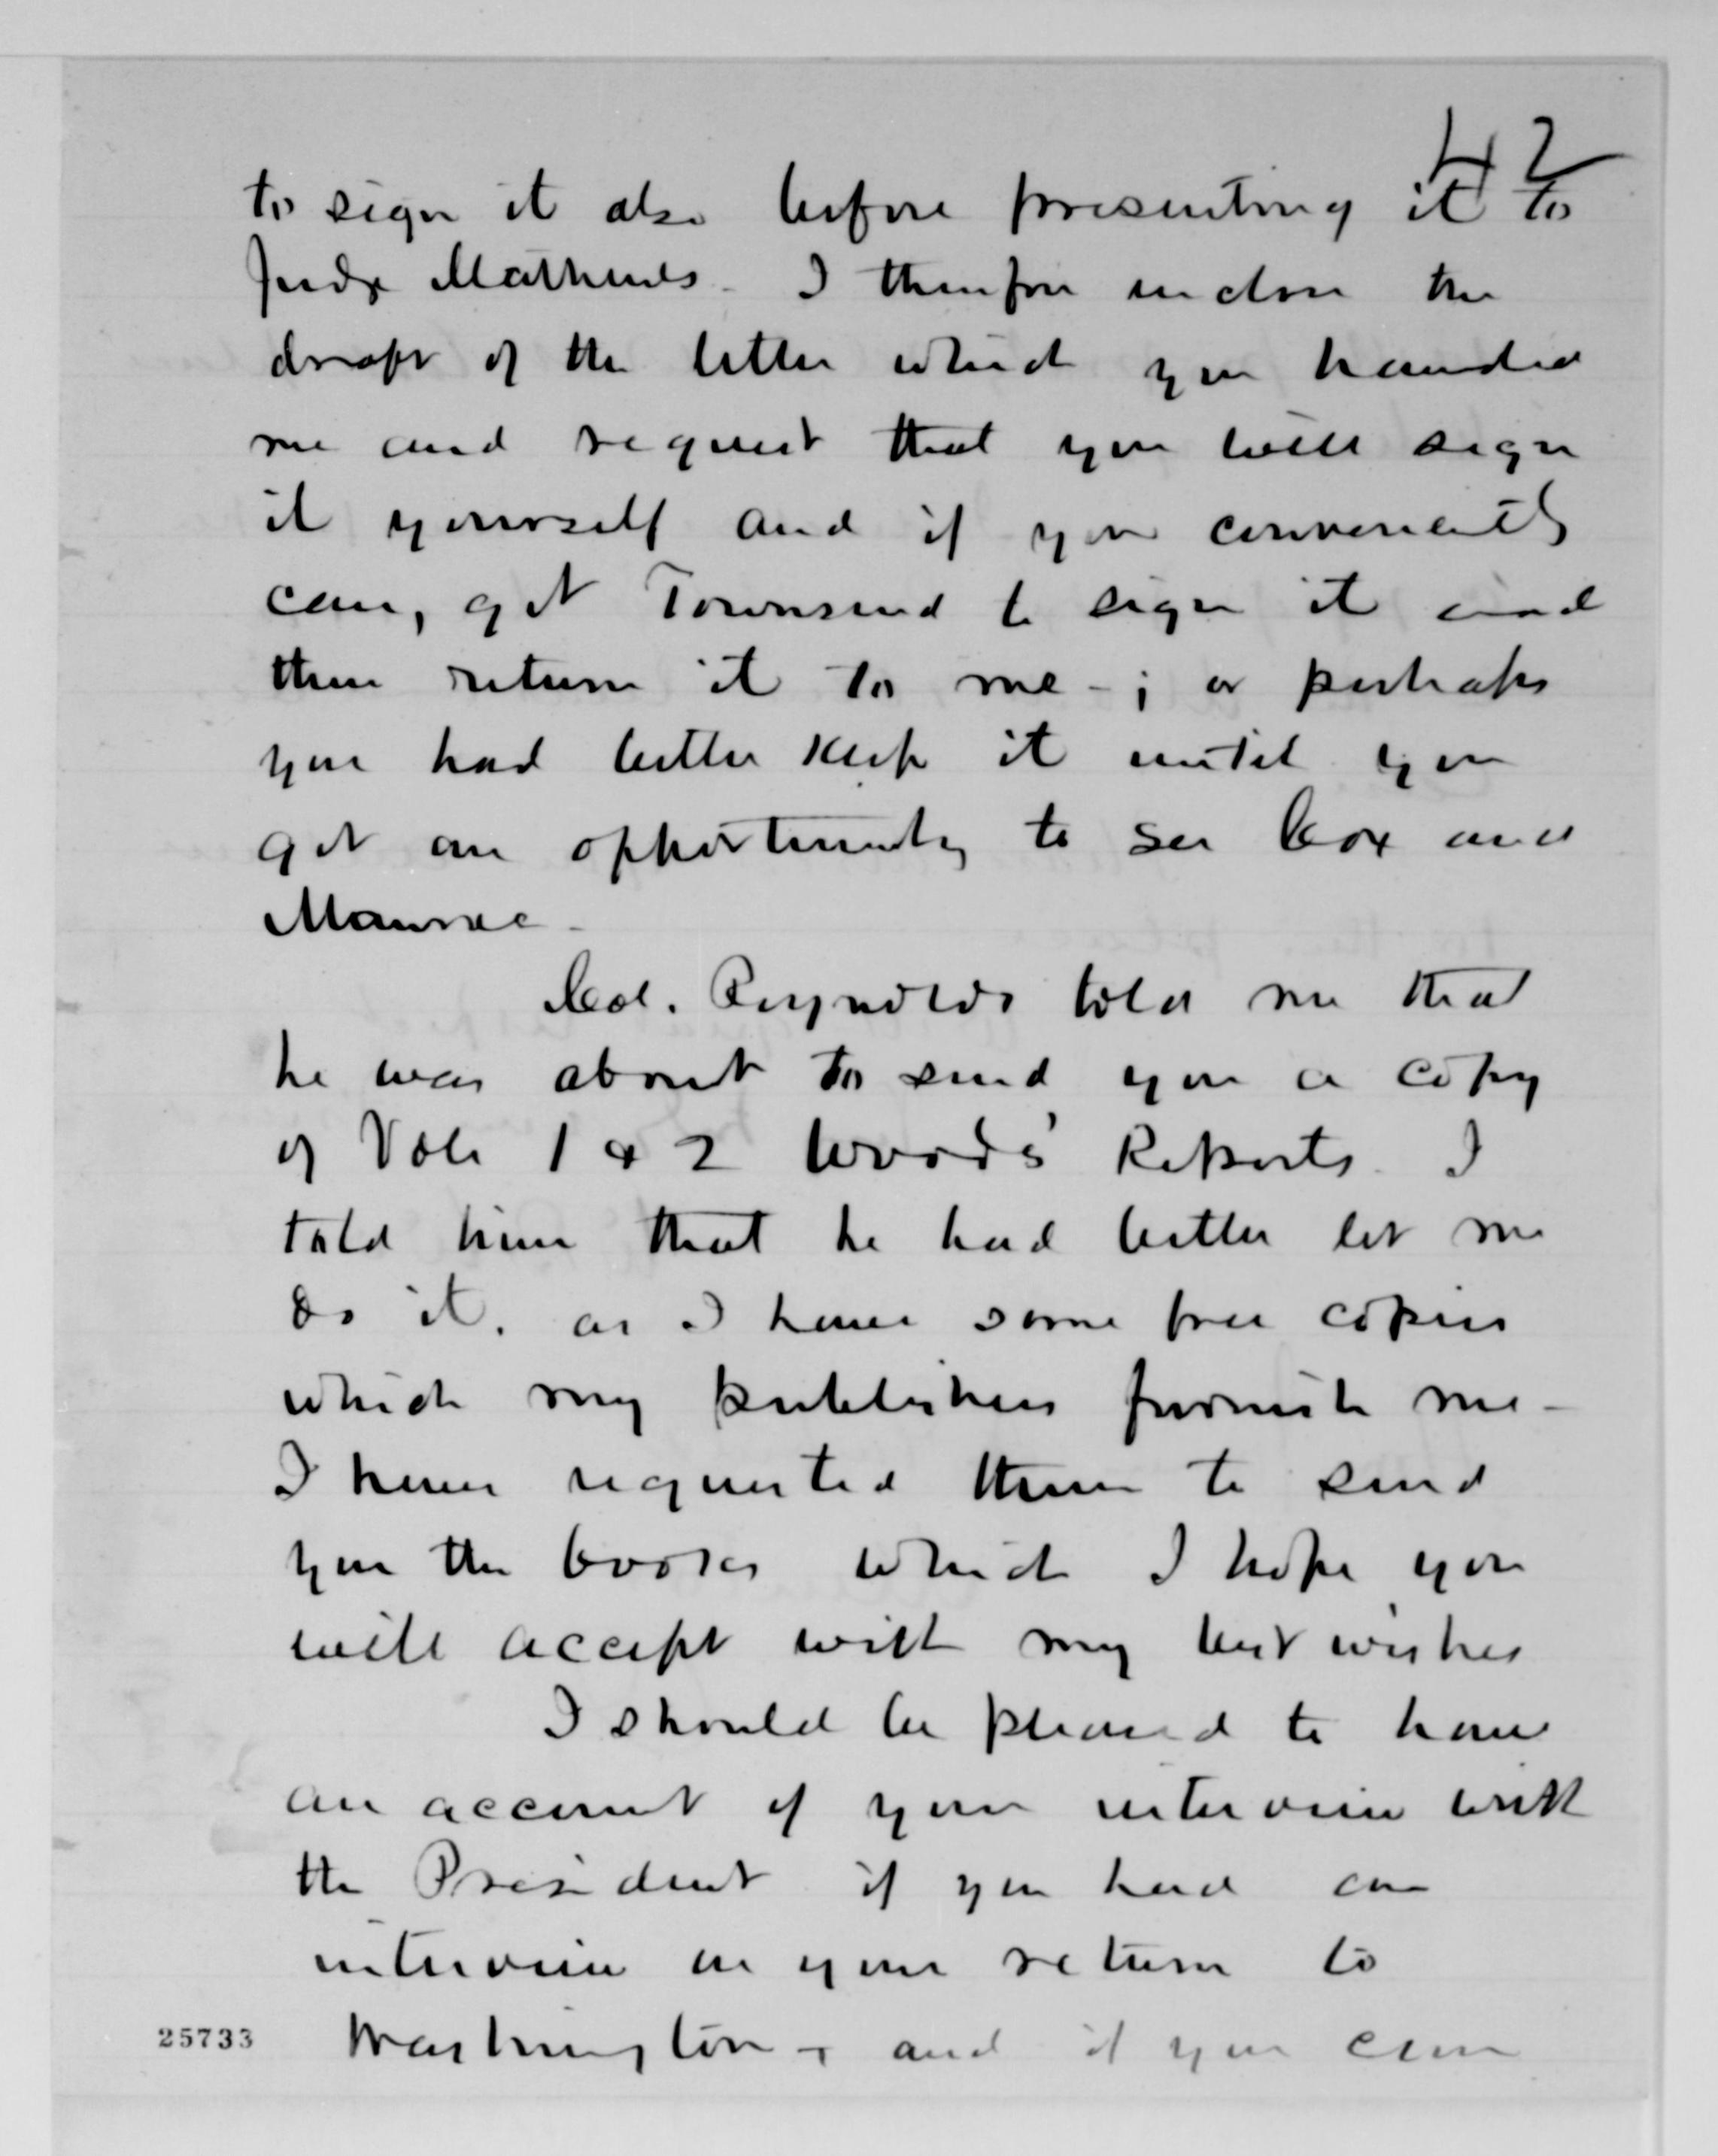 42
to sign it also before presenting it to
Judge Mathews. I therefore inclose the
draft of the letter which you handed
me and request that you will sign
it yourself and if you conveniently
can, get Townsend to sign it and
then return it to me - ; or perhaps
you had better keep it until you
get an opportunity to see Cox and
Monroe -
Col. Reynolds told me that
he was about to send you a copy
of Vols 1 & 2 Woods' Reports. I
told him that he had better let me
do it, as I have some free copies
which my publishers furnish me -
I have requested them to send
you the books which I hope you
will accept with my best wishes
I should be pleased to have
an account of your interview with
the President if you had an
interview on your return to
Washington - and if you can
25733